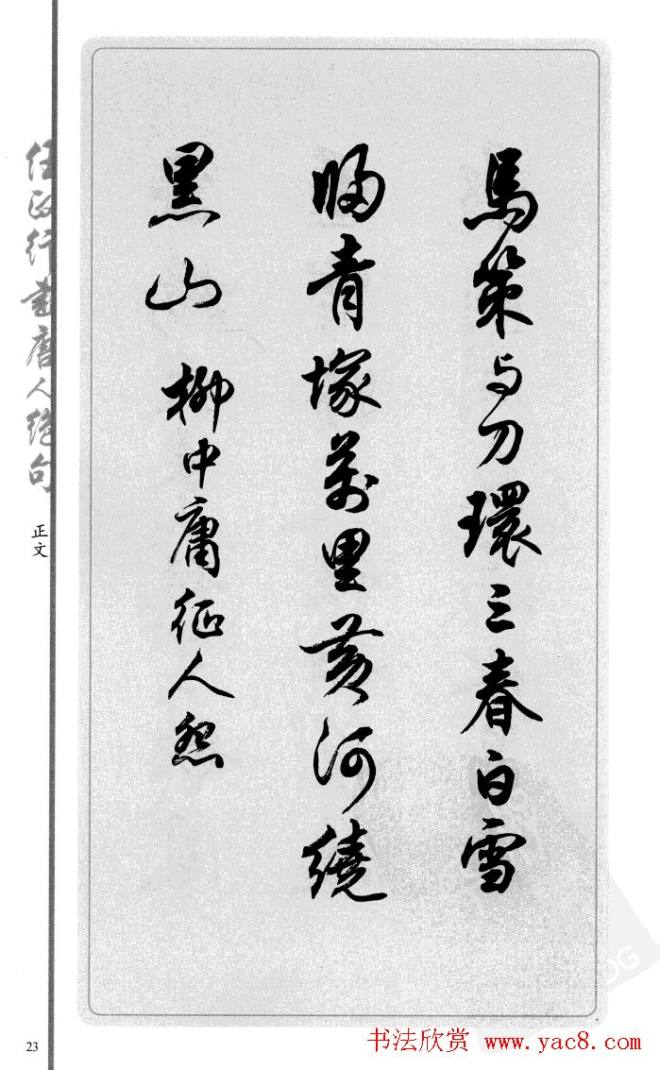 馬策与刀環三春白雪
歸青塚萬里黃河繞
黑山 柳中庸征人怨
任政行書唐人绝句
正文
23
书法欣赏 www.yac8.com